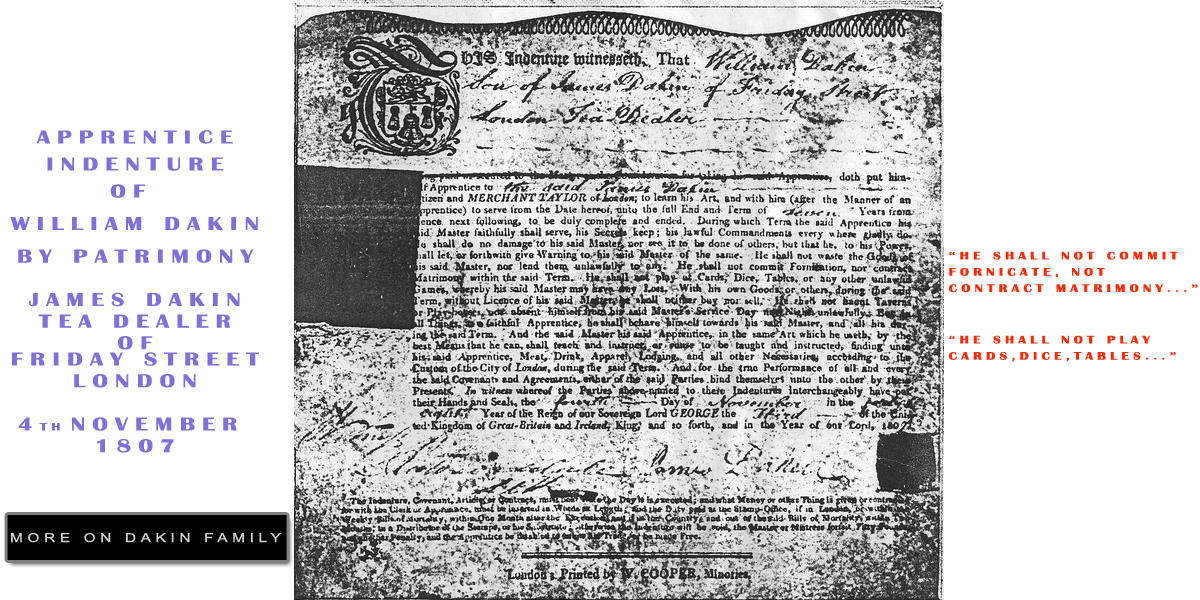 APPRENTICE
INDENTURE
OF
WILLIAM DAKIN
BY PATRIMONY
JAMES DAKIN
TEA DEALER
OF
FRIDAY STREET
LONDON
4TH NOVEMBER
1807
MORE ON DAKIN FAMILY
THIS Indenture witnesseth, That William Dakin
Son of James Dakin of Friday Street
London Tea Dealer
doth put him-
Apprentice to the said James Dakin
and MERCHANT TAYLOR of London, to learn his Art, and with him (after the Manner of an
to serve from the Date hereof, unto the full End and Term of seven Years from
next following, to be duly complete and ended. During which Term the said Apprentice his
Master faithfully shall serve, his Secrets keep; his lawful Commandments every where gladly do.
shall do no damage to his said Master, nor see it to be done of others, but that he, to his Power,
shall let, or forthwith give Warning to his said Master of the same. He shall not waste the Goods of
his said Master, nor lend them unlawfully to any. He shall not commit Fornication, nor contract
Matrimony within the said Term. He shall not play at Cards, Dice, Tables, or any other unlawful
Games, whereby his said Master may have any Loss. With his own Goods or others, during the said
Term, without Licence of his said Master, he shall neither buy nor sell. He shall not haunt Taverns
or Playhouses, nor absent himself from his said Master's Service Day nor Night unlawfully: But in
all Things, as a faithful Apprentice, he shall behave himself towards his said Master, and all his dur-
ing the said Term. And the said Master his said Apprentice, in the same Art which he useth, by the
best Means that he can, shall teach and instruct, or cause to be taught and instructed, finding unto
his said Apprentice, Meat, Drink, Apparel, Lodging, and all other Necessaries, according to the
Custom of the City of London, during the said Term. And for the true Performance of all and every
the said Covenants and Agreements, either of the said Parties bind themselves unto the other by these
Presents. In witness whereof the Parties above-named to these Indentures interchangeably have put
their Hands and Seals, the fourth Day of November in the
eighth Year of the Reign of our Sovereign Lord GEORGE the Third of the Uni-
ted Kingdom of Great-Britain and Ireland, King, and so forth, and in the Year of our Lord, 1807
James Dakin
The Indenture, Covenant, Article, or Contract, must bear Date the Day it is executed; and what Money or other Thing is given or contracted
for with the Clerk or Apprentice, must be inserted in Words at Length; and the Duty paid at the Stamp-Office, if in London, or within the
Weekly Bills of Mortality, within One Month after the Execution, and if in the Country, and out of the said Bills of Mortality, within
London: Printed by W. COOPER, Minories.
"HE SHALL NOT COMMIT
FORNICATE, NOT
CONTRACT MATRIMONY..."
"HE SHALL NOT PLAY
CARDS,DICE,TABLES..."